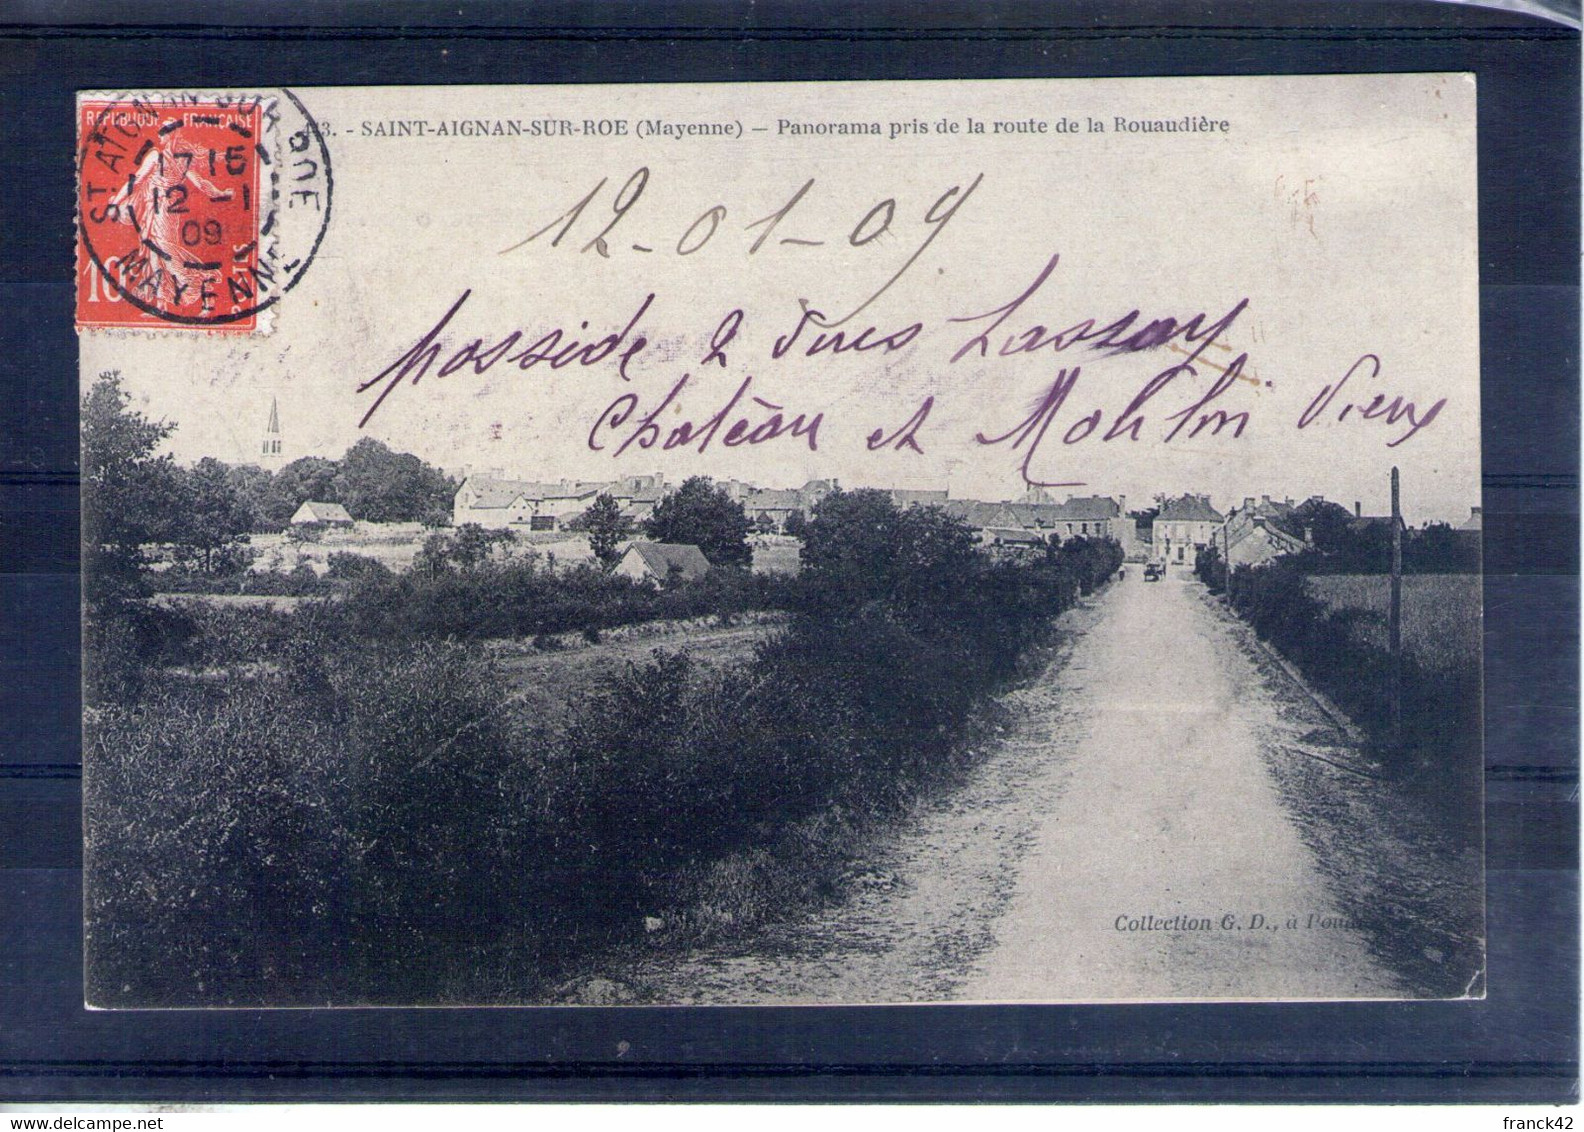 3. - SAINT-AIGNAN-SUR-ROE (Mayenne) — Panorama pris de la route de la Rouaudière
REPUBLIQUE FRANÇAISE
ST AIGNAN-SUR-ROE
17 15
12 -1
09
MAYENNE
10
12-01-09
posside 2 vues Lassay
Chateau et Moulin Vieux
Collection G. D., à
www.delcampe.net
franck42